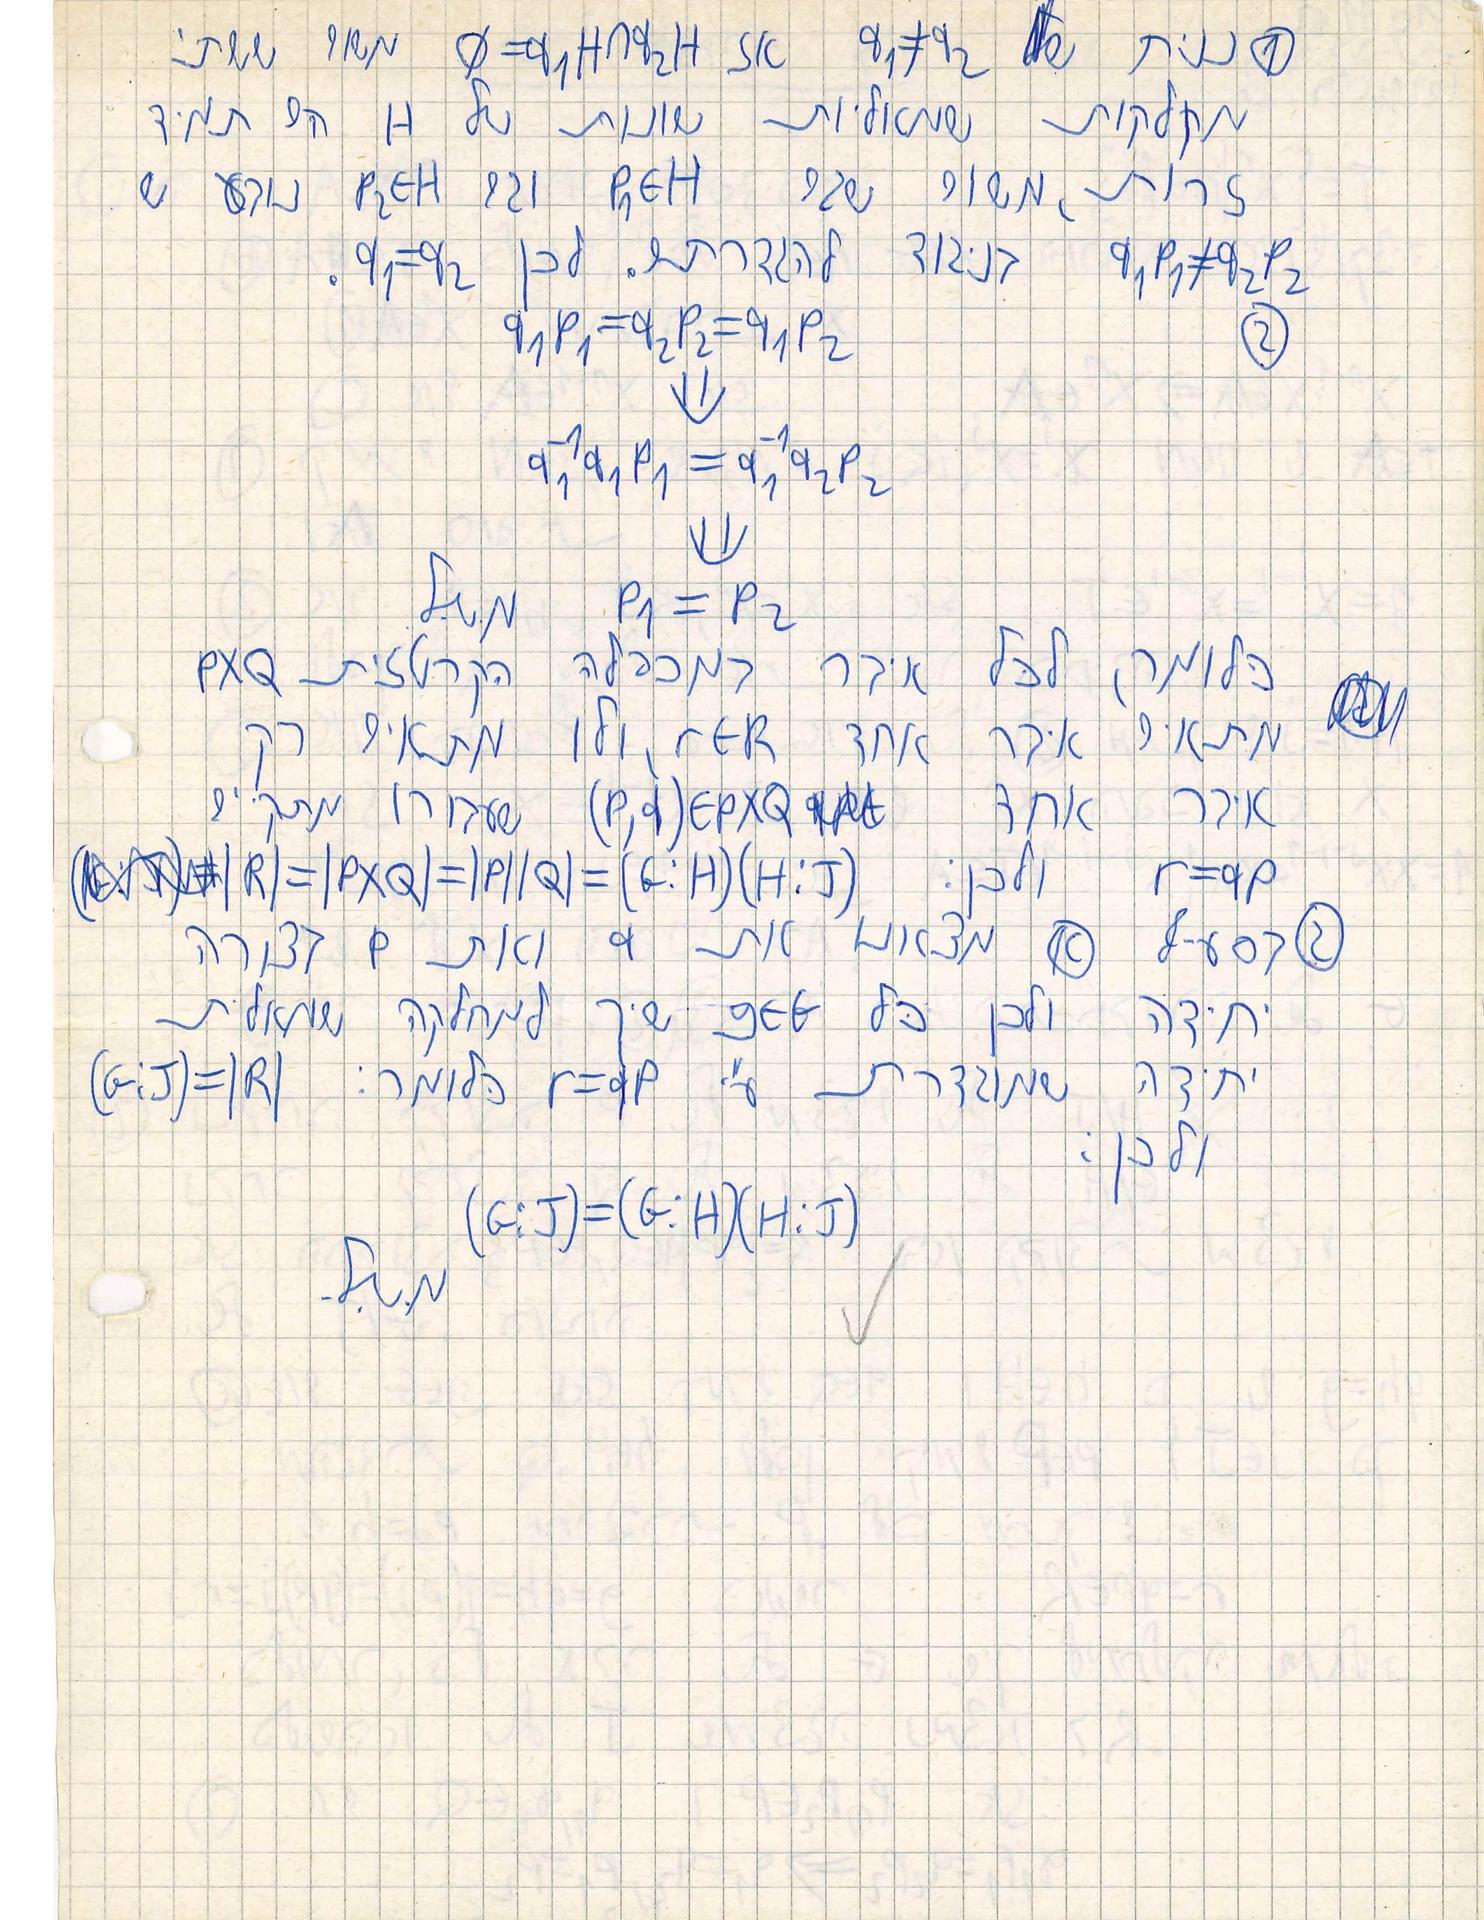 ① נניח ש q₁≠q₂ אז q₁H∩q₂H=∅ משום ששתי
מחלקות שמאליות שונות של H הם תמיד
זרות, משום שגם p₁∈H וגם p₂∈H נובע ש
q₁p₁≠q₂p₂ בניגוד להגדרתם. לכן q₁=q₂.
② q₁p₁=q₂p₂=q₁p₂
⇓
q₁⁻¹q₁p₁=q₁⁻¹q₂p₂
⇓
p₁=p₂ מ.ש.ל.
כלומר, לכל איבר במכפלה הקרטזית P×Q
מתאים איבר אחד r∈R, ולו מתאים רק
איבר אחד (p,q)∈P×Q שעבורו מתקיים
r=qp ולכן: |R|=|P×Q|=|P||Q|=(G:H)(H:J)
③ בסעיף א מצאנו את q ואת p בצורה
יחידה ולכן כל g∈G שייך למחלקה שמאלית
יחידה שמוגדרת ע"י r=qp כלומר: (G:J)=|R|
ולכן:
(G:J)=(G:H)(H:J)
מ.ש.ל.